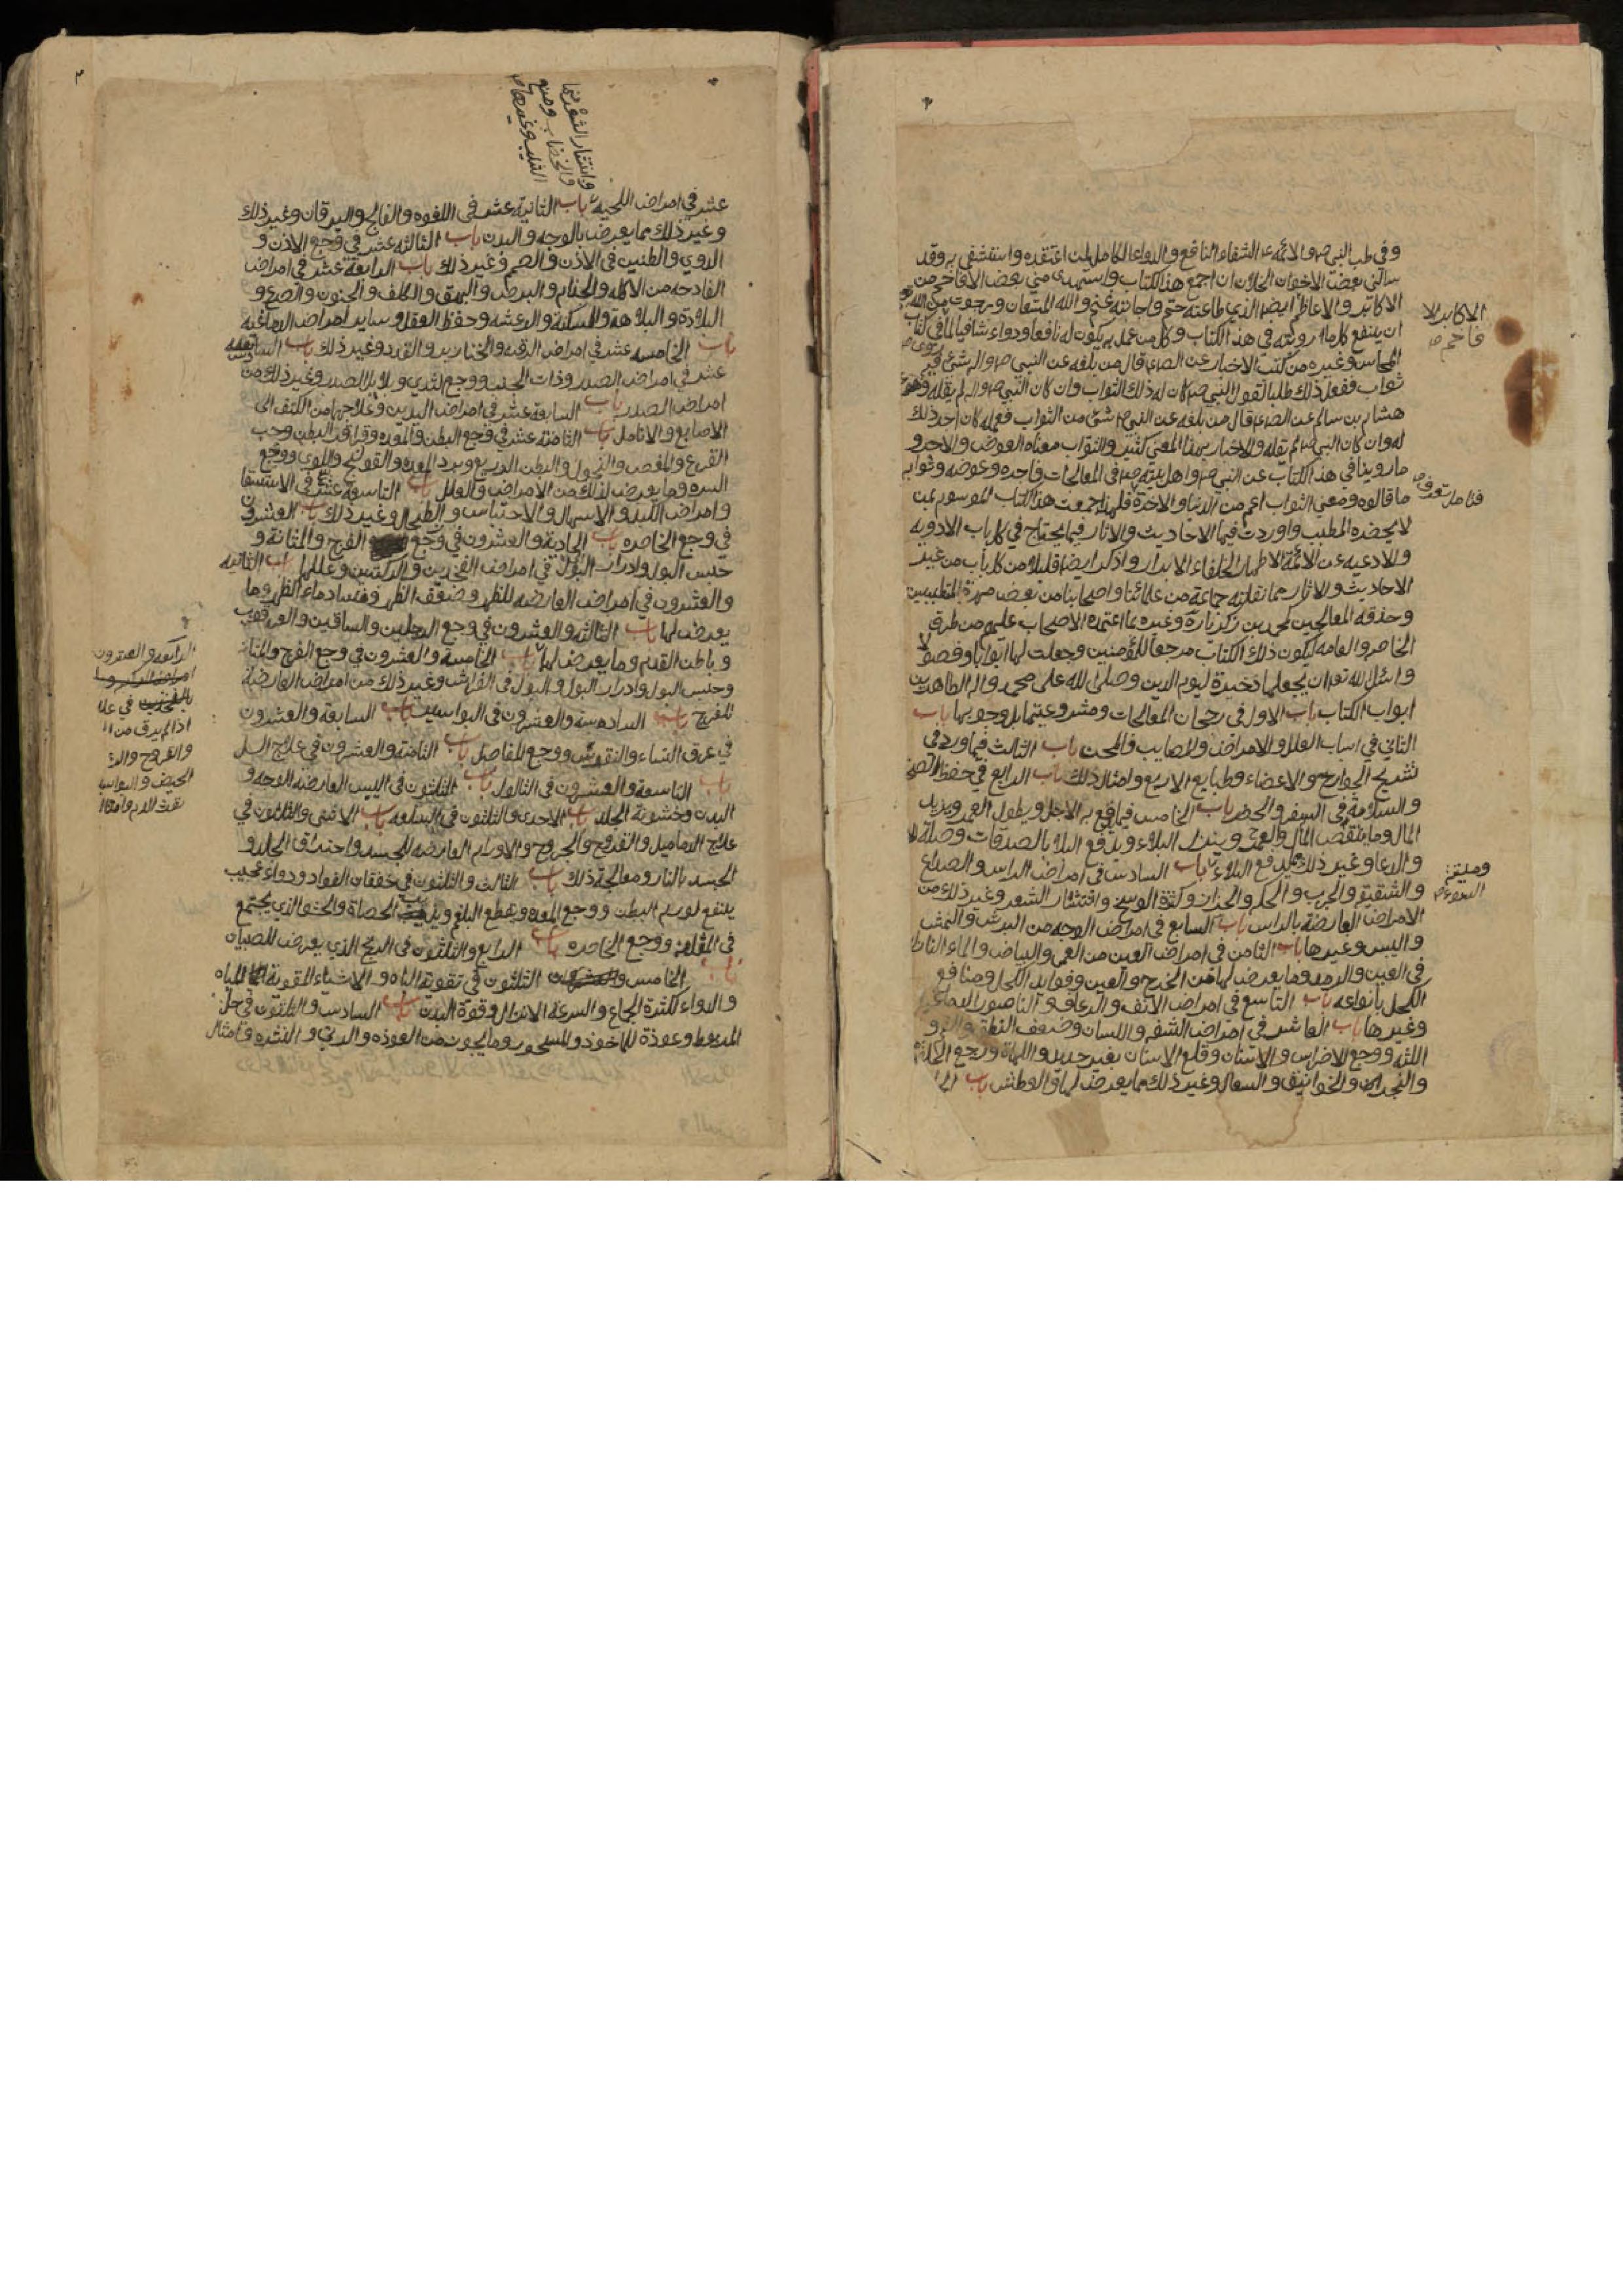 وفى طب النبي ص والائمه ع الشفاء النافع والدواء الكامل لمن اعتقده واستشفى به وقد
سالنى بعض الاخوان الخلان ان اجمع هذا الكتاب واستهدى منى بعض الافاخم من
الاكابر والاعاظم ايضا الذي طاعته حتم واجابته غنم والله المستعان ورجوت من الله
ان ينتفع كل ما رويته فى هذا الكتاب وكل من عمل به يكون له نافعا ودواء شافيا لما فى كتاب
المحاسن وغيره من كتب الاخبار عن الص ع قال من بلغه عن النبي ص واله شئ فيه
ثواب ففعل ذلك طلبا لقول النبي ص كان له ذلك الثواب وان كان النبي ص واله لم يقله وعن
هشام بن سالم عن الص ع قال من بلغه عن النبي ص شئ من الثواب فعمله كان اجر ذلك
له وان كان النبي ص لم يقله والاخبار بهذا المعنى كثير والثواب معناه العوض والاجر و
ما روينا في هذا الكتاب عن النبي ص واهل بيته ص فى المعالجات واجره وعوضه وثوابه
ما قالوه ومعنى الثواب اعم من الدنيا والاخرة فلهذا جمعت هذا الكتاب الموسوم بمن
لا يحضره المطبب واوردت فيها الاحاديث والاثار فيما يحتاج في كل باب الادويه
والادعيه عن الائمة الاطهار الخلفاء الابرار واذكر ايضا قليلا من كل باب من غير
الاحاديث والاثار مما نقلته جماعة من علمائنا واصحابنا من بعض مهرة المتطببين
وحذقه المعالجين كمحمد بن زكريا رة وغيره مما اعتمده الاصحاب عليهم من طرق
الخاصه والعامه ليكون ذلك الكتاب مرجعا للمؤمنين وجعلت لها ابوابا وفصولا
واسئل الله تع ان يجعلها ذخيرة ليوم الدين وصلى الله على محمد واله الطاهرين
ابواب الكتاب باب الاول فى رجحان المعالجات ومشروعيتها بل وجوبها باب
الثاني في اسباب العلل والامراض والمصايب والمحن باب الثالث فيما ورد فى
تشريح الجوارح والاعضاء وطبايع الاربع وامثال ذلك باب الرابع في حفظ الصحة
والسلامة فى السفر والحضر باب الخامس فيما يقع به الاجل ويطول العمر ويزيد
المال وما ينقص المال والعمر وينزل البلاء ويدفع البلا بالصدقات وصلة
والدعا وغير ذلك باب السادس فى امراض الراس والصداع
والشقيقه والجرب والحكه والحزاز وكثرة الوسخ وانتثار الشعر وغير ذلك من
الامراض العارضة بالراس باب السابع فى امراض الوجه من البرش والنمش
واليبس وغيرها باب الثامن في امراض العين من العمى والبياض والماء النازل
فى العين والرمد وما يعرض لها من الخرج والعين وفوايد الكحل ومنافع
الكحل بانواعه باب التاسع فى امراض الانف والرعاف والناصور
وغيرها باب العاشر فى امراض الشفه واللسان وضعف النطق و
اللثه ووجع الاضراس والاسنان وقلع الاسنان بغير حديد واللهاة ووجع
والخوانيق والسعال وغير ذلك مما يعرض لها والعطش باب
الاكابر الا
فاخم ص
وانتثار الشعر منها
والخضاب ومنع
الشيب وغيرها ص
عشر فى امراض اللحيه باب الثانية عشر فى اللقوه والفالج واليرقان وغير ذلك
وغير ذلك مما يعرض بالوجه والبدن باب الثالثه عشر في وجع الاذن و
الدوي والطنين فى الاذن والصمم وغير ذلك باب الرابعة عشر فى امراض
الفادحه من الاكله والجذام والبرص والبهق والكلف والجنون والصرع و
البلادة والبلاهة والسكته والرعشه وحفظ العقل وساير امراض الدماغيه
باب الخامسه عشر فى امراض الرقبه والخنازير والغدد وغير ذلك باب السادس
عشر فى امراض الصدر وذات الجنب ووجع الثدي وبلابل الصدر وغير ذلك من
امراض الصدر باب السابعة عشر فى امراض اليدين وعلاجها من الكتف الى
الاصابع والانامل باب الثامنة عشر في وجع البطن والمعده وقراقر البطن وحب
القرع والمغص والبطن الذريع وبرد المعده والقولنج واللوى ووجع
السره وما يعرض لذلك من الامراض والعلل باب التاسعة عشر فى الاستسقا
وامراض الكبد والاسهال والاحتباس والطحال وغير ذلك باب العشرون
في وجع الخاصره باب الحادية والعشرون في وجع الفرج والمثانة و
حبس البول وادرار البول في امراض الفخذين والركبتين وعللها باب الثانيه
والعشرون في امراض العارضه للظهر وضعف الظهر وفساد ماء الظهر وما
يعرض لها باب الثالثه والعشرون في وجع الرجلين والساقين والعرقوب
وباطن القدم وما يعرض لها باب الخامسة والعشرون في وجع الفرج والمثانة
وحبس البول وادرار البول والبول فى الفراش وغير ذلك من امراض العارضة
للفرج باب السادسة والعشرون فى البواسير باب السابعة والعشرون
في عرق النساء والنقرس ووجع المفاصل باب الثامنة والعشرون في علاج السل
باب التاسعة والعشرون فى الثالول باب الثلثون فى اليبس العارضه الوجه و
البدن وخشونة الجلد باب الاحدى والثلثون فى السلعه باب الاثنى والثلثون في
علاج الدماميل والقروح والجروح والاورام العارضه للجسد واحتراق الجلد و
الجسد بالنار ومعالجة ذلك باب الثالث والثلثون في خفقان الفواد ودواء عجيب
ينتفع لورم البطن ووجع المعده ويقطع البلغم ويذيب الحصاة والحشو الذي يجتمع
فى المثانه ووجع الخاصره باب الرابع والثلثون فى الريح الذي يعرض للصبيان
باب الخامس و الثلثون في تقوية الباه والاشياء المقوية للباه
والدواء لكثرة الجماع والسرعة الانزال وقوة البدن باب السادس والثلثون في حل
المربوط وعوذة للماخوذ والمسحور وما يجوز من العوذه والرقي والنشره وامثال
الرابعه والعشرون
في علا
اذا لم يرق من
والقروح
الحيض والبواسير